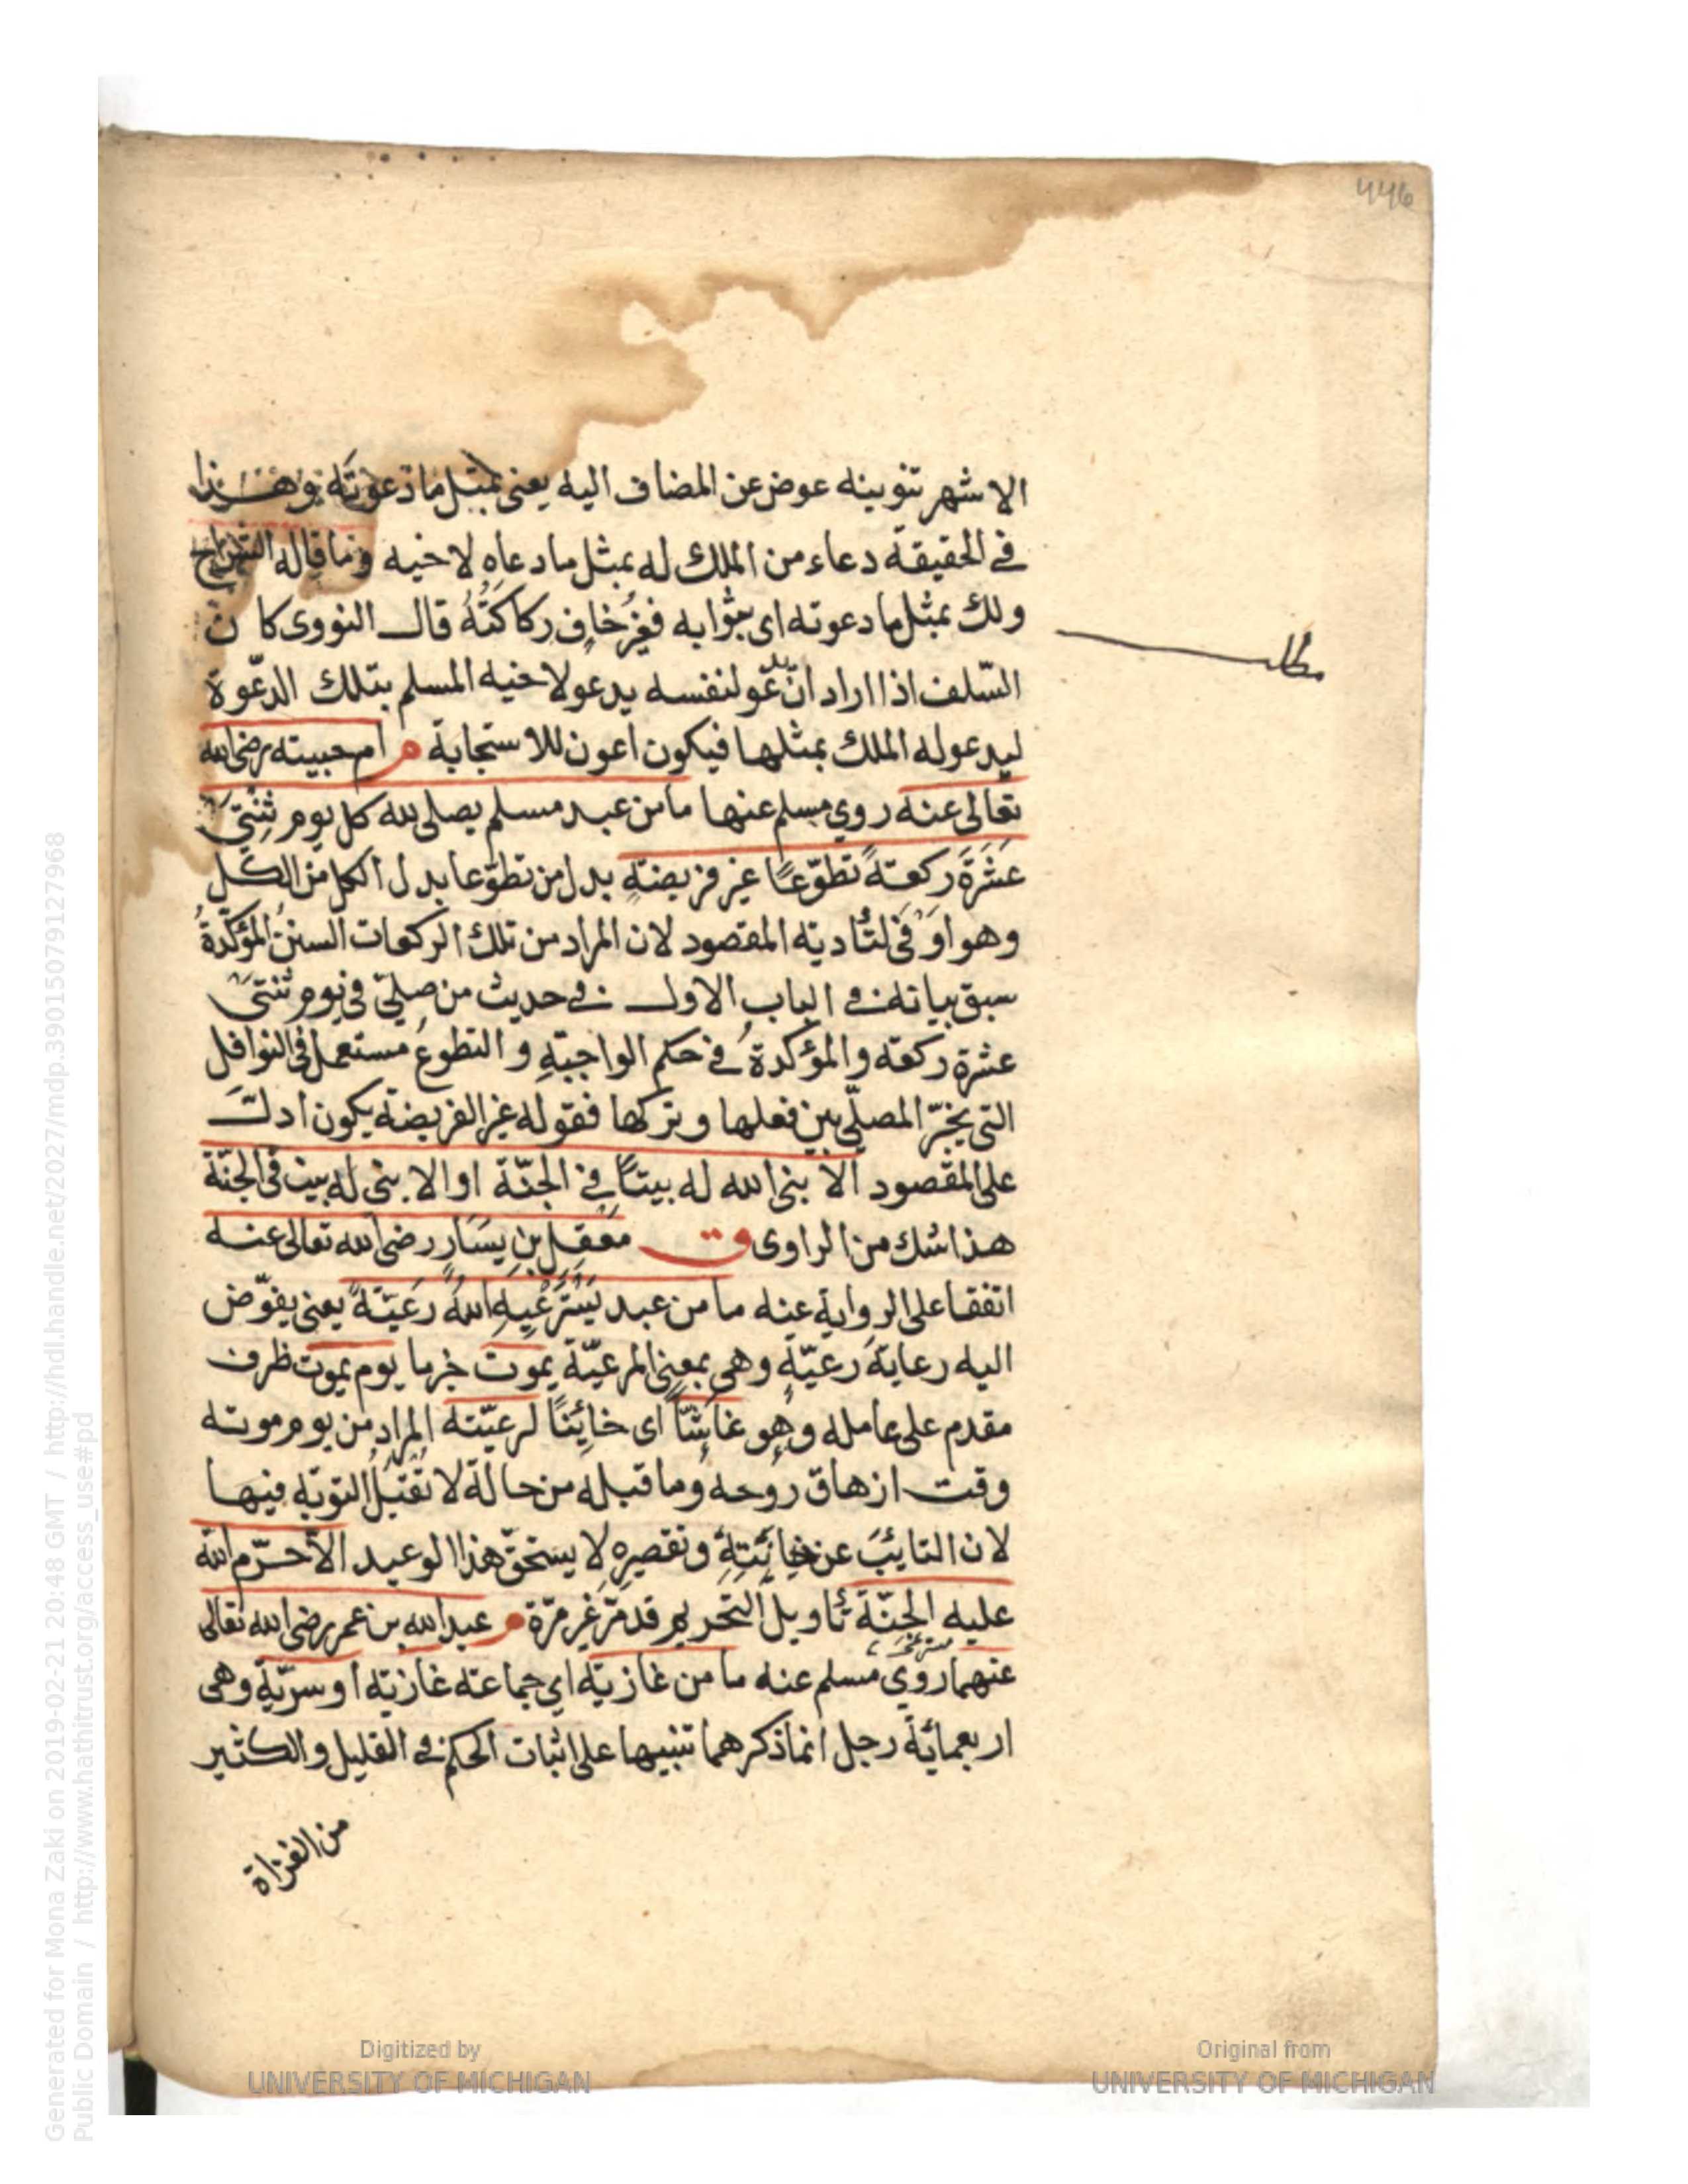 446
الاشهر تنوينه عوض عن المضاف اليه يعنى بمثل ما دعوته وهذا
في الحقيقة دعاء من الملك له بمثل ما دعاه لاخيه وما قاله الشراح
ولك بمثل ما دعوته اى بثوابه فغير خاف ركاكَتُهُ قال النووى كان
السّلف اذا اراد انّ يدعو لنفسه يدعو لاخيه المسلم بتلك الدعّوة
مطلب
ليدعو له الملك بمثلها فيكون اعون للاستجابة م ام حبيبته رضى الله
تعالى عنه روي مسلم عنها ما من عبد مسلم يصلى لله كل يوم ثِنْتَىْ
عَشْرَةَ ركعتهً تطوّعًا غير فريضتهٍ بدل من تطوّعا بدل الكل من الكل
وهو اوَْفى لتأديته المقصود لان المراد من تلك الركعات السننُ المؤكّدةُ
سبق بيانه في الباب الاول في حديث من صلىّ فى يوم ثنتىْ
عشرة ركعته والمؤكدةُ في حكم الواجبتهِ و التطوعُ مستعمل فى النوافل
التى يخيّر المصلّي بين فعلها و تركها فقوله غير الفريضته يكون ادلّ
على المقصود الا بنى الله له بيتًا في الجنّة او الا بنى له بيت فى الجنّة
هذا شك من الراوى ق مَعْقِل بن يَسَارٍ رضى الله تعالى عنه
اتفقا على الرواية عنه ما من عبد يَسْتَرْعْيِهِ اللهُ رَعَيّتهً يعنى يفوّض
اليه رعايةَ رعيّةٍ وهى بمعنى المرعيّة يموت خبر ما يوم يموت ظرف
مقدم على عامله وهو غاشًّا اى خائِنًا لرعيّته المراد من يوم موته
وقت ازهاق روحه وما قبله من حالة لا تُقْبَلُ التوبَة فيها
لان التايبَ عن خيانَتِهِ وتقصيرِهِ لا يستحقّ هذا الوعيد الاّ حرّم الله
عليه الجنّة تأويل التحريم قد مرّ غير مَرّة م عبد الله بن عمر رضى الله تعالى
عنهما روى مسلم عنه ما من غازيته اي جماعته غازيته او سرّيةٍ وهى
اربعمائة رجل انما ذكرهما تنبيها على اثبات الحكم في القليل والكثير
من الغزاة
Digitized by
UNIVERSITY OF MICHIGAN
Original from
UNIVERSITY OF MICHIGAN
Generated for Mona Zaki on 2019-02-21 20:48 GMT / http://hdl.handle.net/2027/mdp.39015079127968
Public Domain / http://www.hathitrust.org/access_use#pd